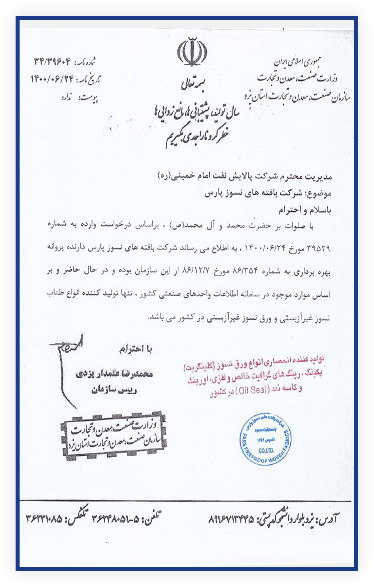 جمهوری اسلامی ایران
وزارت صنعت، معدن و تجارت
سازمان صنعت، معدن و تجارت استان یزد
شماره نامه: ۳۴/۳۹۶۰۴
تاریخ نامه: ۱۴۰۰/۰۶/۲۴
پیوست: ندارد
بسمه تعالی
سال تولید، پشتیبانی ها، مانع زدایی ها
خطر کرونا را جدی بگیریم
مدیریت محترم شرکت پالایش نفت امام خمینی(ره)
موضوع: شرکت بافته های نسوز پارس
باسلام و احترام
با صلوات بر حضرت محمد و آل محمد(ص) ، براساس درخواست وارده به شماره
۳۹۵۲۹ مورخ ۱۴۰۰/۰۶/۲۴ ، به اطلاع می رساند شرکت بافته های نسوز پارس دارنده پروانه
بهره برداری به شماره ۸۶/۳۵۴ مورخ ۸۶/۱۲/۷ از این سازمان بوده و در حال حاضر و بر
اساس موارد موجود در سامانه اطلاعات واحدهای صنعتی کشور ، تنها تولید کننده انواع طناب
نسوز غیرآزبستی و ورق نسوز غیرآزبستی در کشور می باشد.
با احترام
محمدرضا علمدار یزدی
رییس سازمان
وزارت صنعت، معدن و تجارت
سازمان صنعت، معدن و تجارت استان یزد
تولید کننده انحصاری انواع ورق نسوز (کلینگریت)
پکینگ ، رینگ های گرافیت خالص و فلزی، اورینگ
و کاسه نمد (Oil Seal) در کشور
CO.LTD.
PARS FIREPROOF WOVEN
آدرس: یزد بلوار دانشجو کد پستی: ۸۹۱۶۷۱۳۴۴۵
تلفن: ۵-۳۶۲۴۸۰۵۱
تلفکس: ۳۶۲۴۱۰۸۵